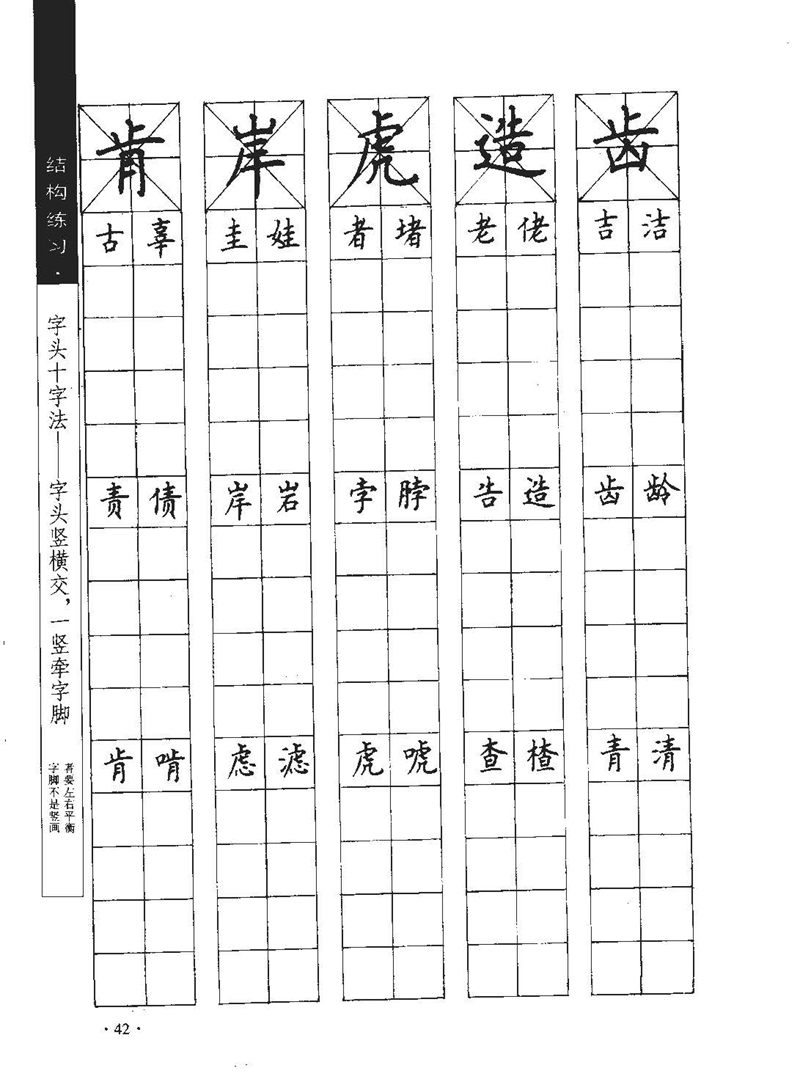 结构练习·
字头十字法——字头竖横交，一竖牵字脚
字脚不是竖画
者要左右平衡
肯 岸 虎 造 齿
古 辜 圭 娃 者 堵 老 佬 吉 洁
责 债 岸 岩 孛 脖 告 造 齿 龄
肯 啃 虑 滤 虎 唬 查 楂 青 清
·42·